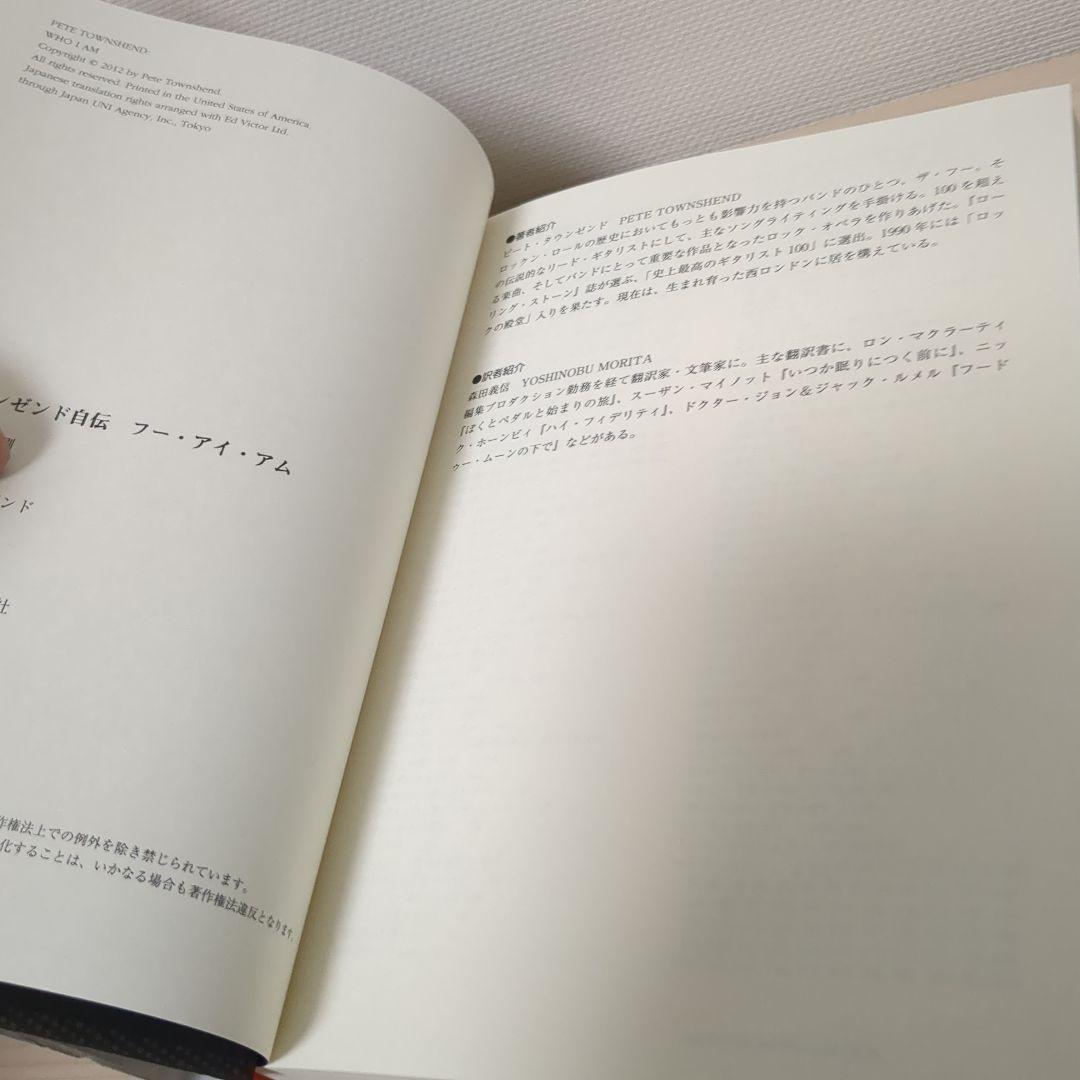 PETE TOWNSHEND:
WHO I AM
Copyright © 2012 by Pete Townshend.
All rights reserved. Printed in the United States of America.
Japanese translation rights arranged with Ed Victor Ltd.
through Japan UNI Agency, Inc., Tokyo
ンゼンド自伝 フー・アイ・アム
ンド
社
作権法上での例外を除き禁じられています。
化することは、いかなる場合も著作権法違反となります。
●著者紹介
ピート・タウンゼンド PETE TOWNSHEND
ロックン・ロールの歴史においてもっとも影響力を持つバンドのひとつ、ザ・フー。そ
の伝説的なリード・ギタリストにして、主なソングライティングを手掛ける。100を超え
る楽曲、そしてバンドにとって重要な作品となったロック・オペラを作りあげた。『ロー
リング・ストーン』誌が選ぶ、「史上最高のギタリスト100」に選出。1990年には「ロッ
クの殿堂」入りを果たす。現在は、生まれ育った西ロンドンに居を構えている。
●訳者紹介
森田義信 YOSHINOBU MORITA
編集プロダクション勤務を経て翻訳家・文筆家に。主な翻訳書に、ロン・マクラーティ
『ぼくとペダルと始まりの旅』、スーザン・マイノット『いつか眠りにつく前に』、ニッ
ク・ホーンビィ『ハイ・フィデリティ』、ドクター・ジョン＆ジャック・ルメル『フード
ゥー・ムーンの下で』などがある。